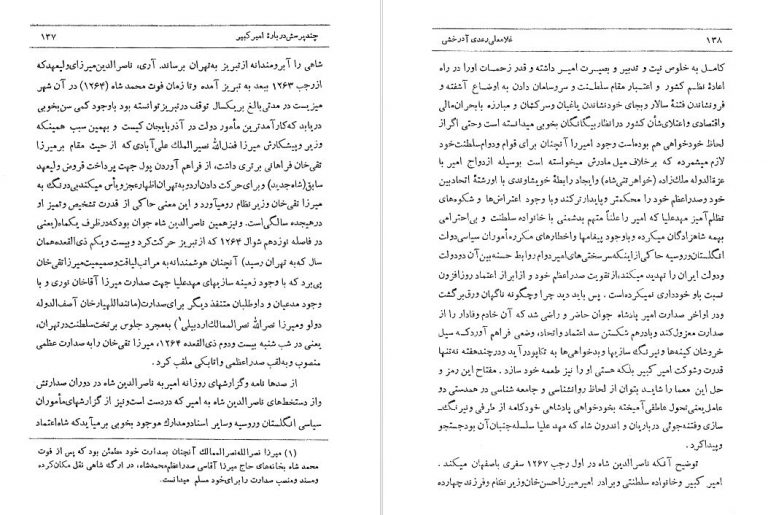 چند پرسش درباره امیر کبیر ۱۳۷
شاهی را آبرومندانه از تبریز به تهران برساند. آری، ناصرالدین میرزای ولیعهد که
از رجب ۱۲۶۳ ببعد به تبریز آمده وتا زمان فوت محمد شاه (۱۲۶۴) در آن شهر
میزیست در مدتی بالغ بریکسال توقف در تبریز توانسته بود باوجود کمی سن بخوبی
دریابد که کارآمدترین مأمور دولت در آذربایجان کیست و بهمین سبب همینکه
وزیر و پیشکارش میرزا فضل الله نصیر الملک علی آبادی که از حیث مقام برمیرزا
تقی خان فراهانی برتری داشت، از فراهم آوردن پول جهت پرداخت قروض ولیعهد
سابق (شاه جدید) و برای حرکت دادن اردو به تهران اظهار عجز و یأس میکند بی درنگ به
میرزا تقی خان وزیر نظام رومیآورد و این معنی حاکی از قدرت تشخیص و تمیز او
در هیجده سالگی است. و نیز همین ناصرالدین شاه جوان بود که در ظرف یکماه (یعنی
در فاصله نوزدهم شوال ۱۲۶۴ که از تبریز حرکت کرد و بیست ویکم ذی القعده همان
سال که به تهران رسید) آنچنان هوشمندانه به مراتب لیاقت و صمیمیت میرزا تقی خان
پی برد که با وجود زمینه سازیهای مهد علیا جهت صدارت میرزا آقاخان نوری و با
وجود مدعیان و داوطلبان متنفذ دیگر برای صدارت (مانند اللهیار خان آصف الدوله
دولو و میرزا نصر الله نصر الممالک اردبیلی۱) به مجرد جلوس بر تخت سلطنت در تهران،
یعنی در شب شنبه بیست ودوم ذی القعده ۱۲۶۴، میرزا تقی خان را به صدارت عظمی
منصوب و به لقب صدر اعظمی و اتابکی ملقب کرد.
از صدها نامه وگزارشهای روزانه امیر به ناصرالدین شاه در دوران صدارتش
واز دستخطهای ناصرالدین شاه به امیر که در دست است و نیز از گزارشهای مأموران
سیاسی انگلستان وروسیه وسایر اسناد و مدارک موجود بخوبی برمیآید که شاه اعتماد
(۱) میرزا نصر الله نصر الممالک آنچنان بصدارت خود مطمئن بود که پس از فوت
محمد شاه بخانه های حاج میرزا آقاسی صدر اعظم محمد شاه، در ارگ شاهی نقل مکان کرده
ومسند ومنصب صدارت را برای خود مسلم میدانست.
۱۳۸ غلامعلی رعدی آدرخشی
کامل به خلوص نیت و تدبیر و بصیرت امیر داشته و قدر زحمات اورا در راه
اعادهٔ نظم کشور و اعتبار مقام سلطنت و سروسامان دادن به اوضاع آشفته و
فرونشاندن فتنهٔ سالار و بجای خودنشاندن یاغیان و سرکشان و مبارزه بابحران مالی
و اقتصادی و اعتلای شأن کشور در انظار بیگانگان بخوبی میدانسته است وحتی اگر از
لحاظ خودخواهی هم بوده است وجود امیر را آنچنان برای قوام و دوام سلطنت خود
لازم میشمرده که برخلاف میل مادرش میخواسته است بوسیله ازدواج امیر با
عزة الدوله ملک زاده (خواهر تنی شاه) و ایجاد رابطهٔ خویشاوندی با او رشتهٔ اتحاد بین
خود و صدراعظم خود را محکمتر و پایدارتر کند و با وجود اعتراض ها و شکوه های
تظلم آمیز مهد علیا که امیر را علناً متهم بدشمنی با خانواده سلطنت و بی احترامی
بهمه شاهزادگان میکرده و با وجود پیغامها و اخطارهای مکرره مأموران سیاسی دولت
انگلستان و روسیه حاکی از اینکه سرسختی های امیر دوام روابط حسنه بین آن دو دولت
و دولت ایران را تهدید میکند، از تقویت صدر اعظم خود و از ابراز اعتماد روزافزون
نسبت باو خودداری نمیکرده است. پس باید دید چرا و چگونه ناگهان ورق برگشت
و در اواخر صدارت امیر پادشاه جوان حاضر و راضی شد که آن خادم وفادار را از
صدارت معزول کند و با درهم شکستن سد اعتماد و اتحاد، وضعی فراهم آورد که سیل
خروشان کینه ها و نیرنگ سازیها و بدخواهی ها به تکاپو درآید و در چند هفته نه تنها
قدرت و شوکت امیر کبیر بلکه هستی او را نیز طعمه خود سازد. مفتاح این رمز و
حل این معما را شاید بتوان از لحاظ روانشناسی و جامعه شناسی در همدستی دو
عامل یعنی تحول عاطفی آمیخته بخودخواهی پادشاهی خودکامه از طرفی و نیرنگ
سازی و فتنه جوئی درباریان و اندرون شاه که مهد علیا سلسله جنبان آن بود جستجو
و پیدا کرد.
توضیح آنکه ناصرالدین شاه در اول رجب ۱۲۶۷ سفری باصفهان میکند.
امیر کبیر و خانواده سلطنتی و برادر امیر میرزا حسن خان وزیر نظام و فرزند چهارده